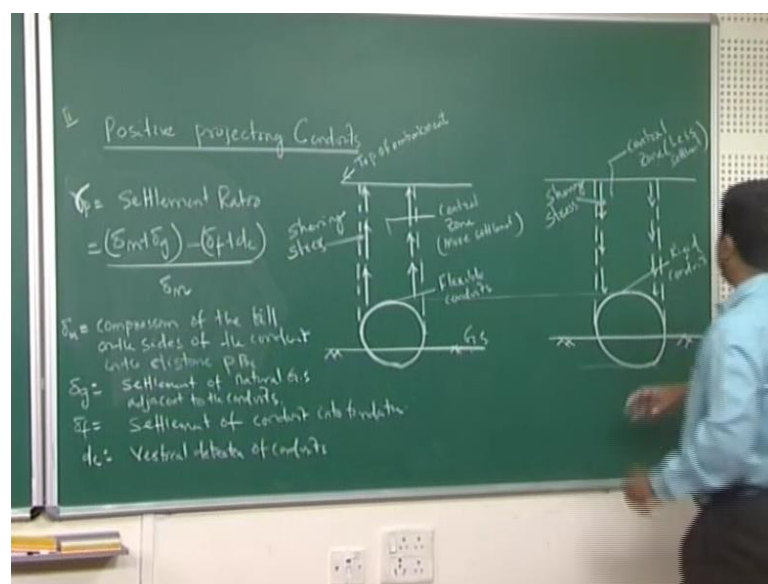 II
Positive projecting Conduits
γp = Settlement Ratio
= (δm + δg) - (δf + dc)
δm
δm = compression of the fill
on the sides of the conduit
δg = Settlement of natural G.S
adjacent to the conduits.
δf = Settlement of conduit into foundation
dc = Vertical of conduits
Top of embankment
Shearing
stress
Central
Zone
(More settlement)
Flexible
conduits
G.S
Central
Zone (Less
settlement)
Shearing
stress
Rigid
conduit